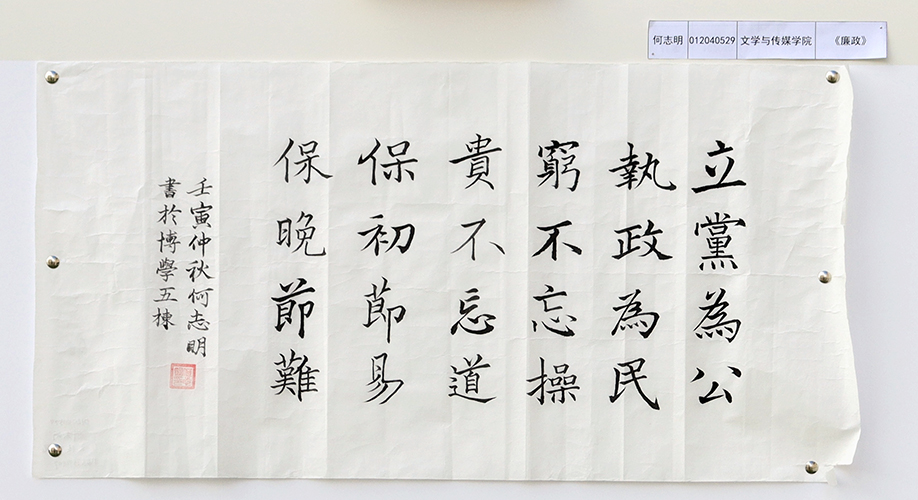 何志明 012040529 文学与传媒学院 《廉政》
立黨為公
執政為民
窮不忘操
貴不忘道
保初節易
保晚節難
壬寅仲秋何志明
書於博學五棟